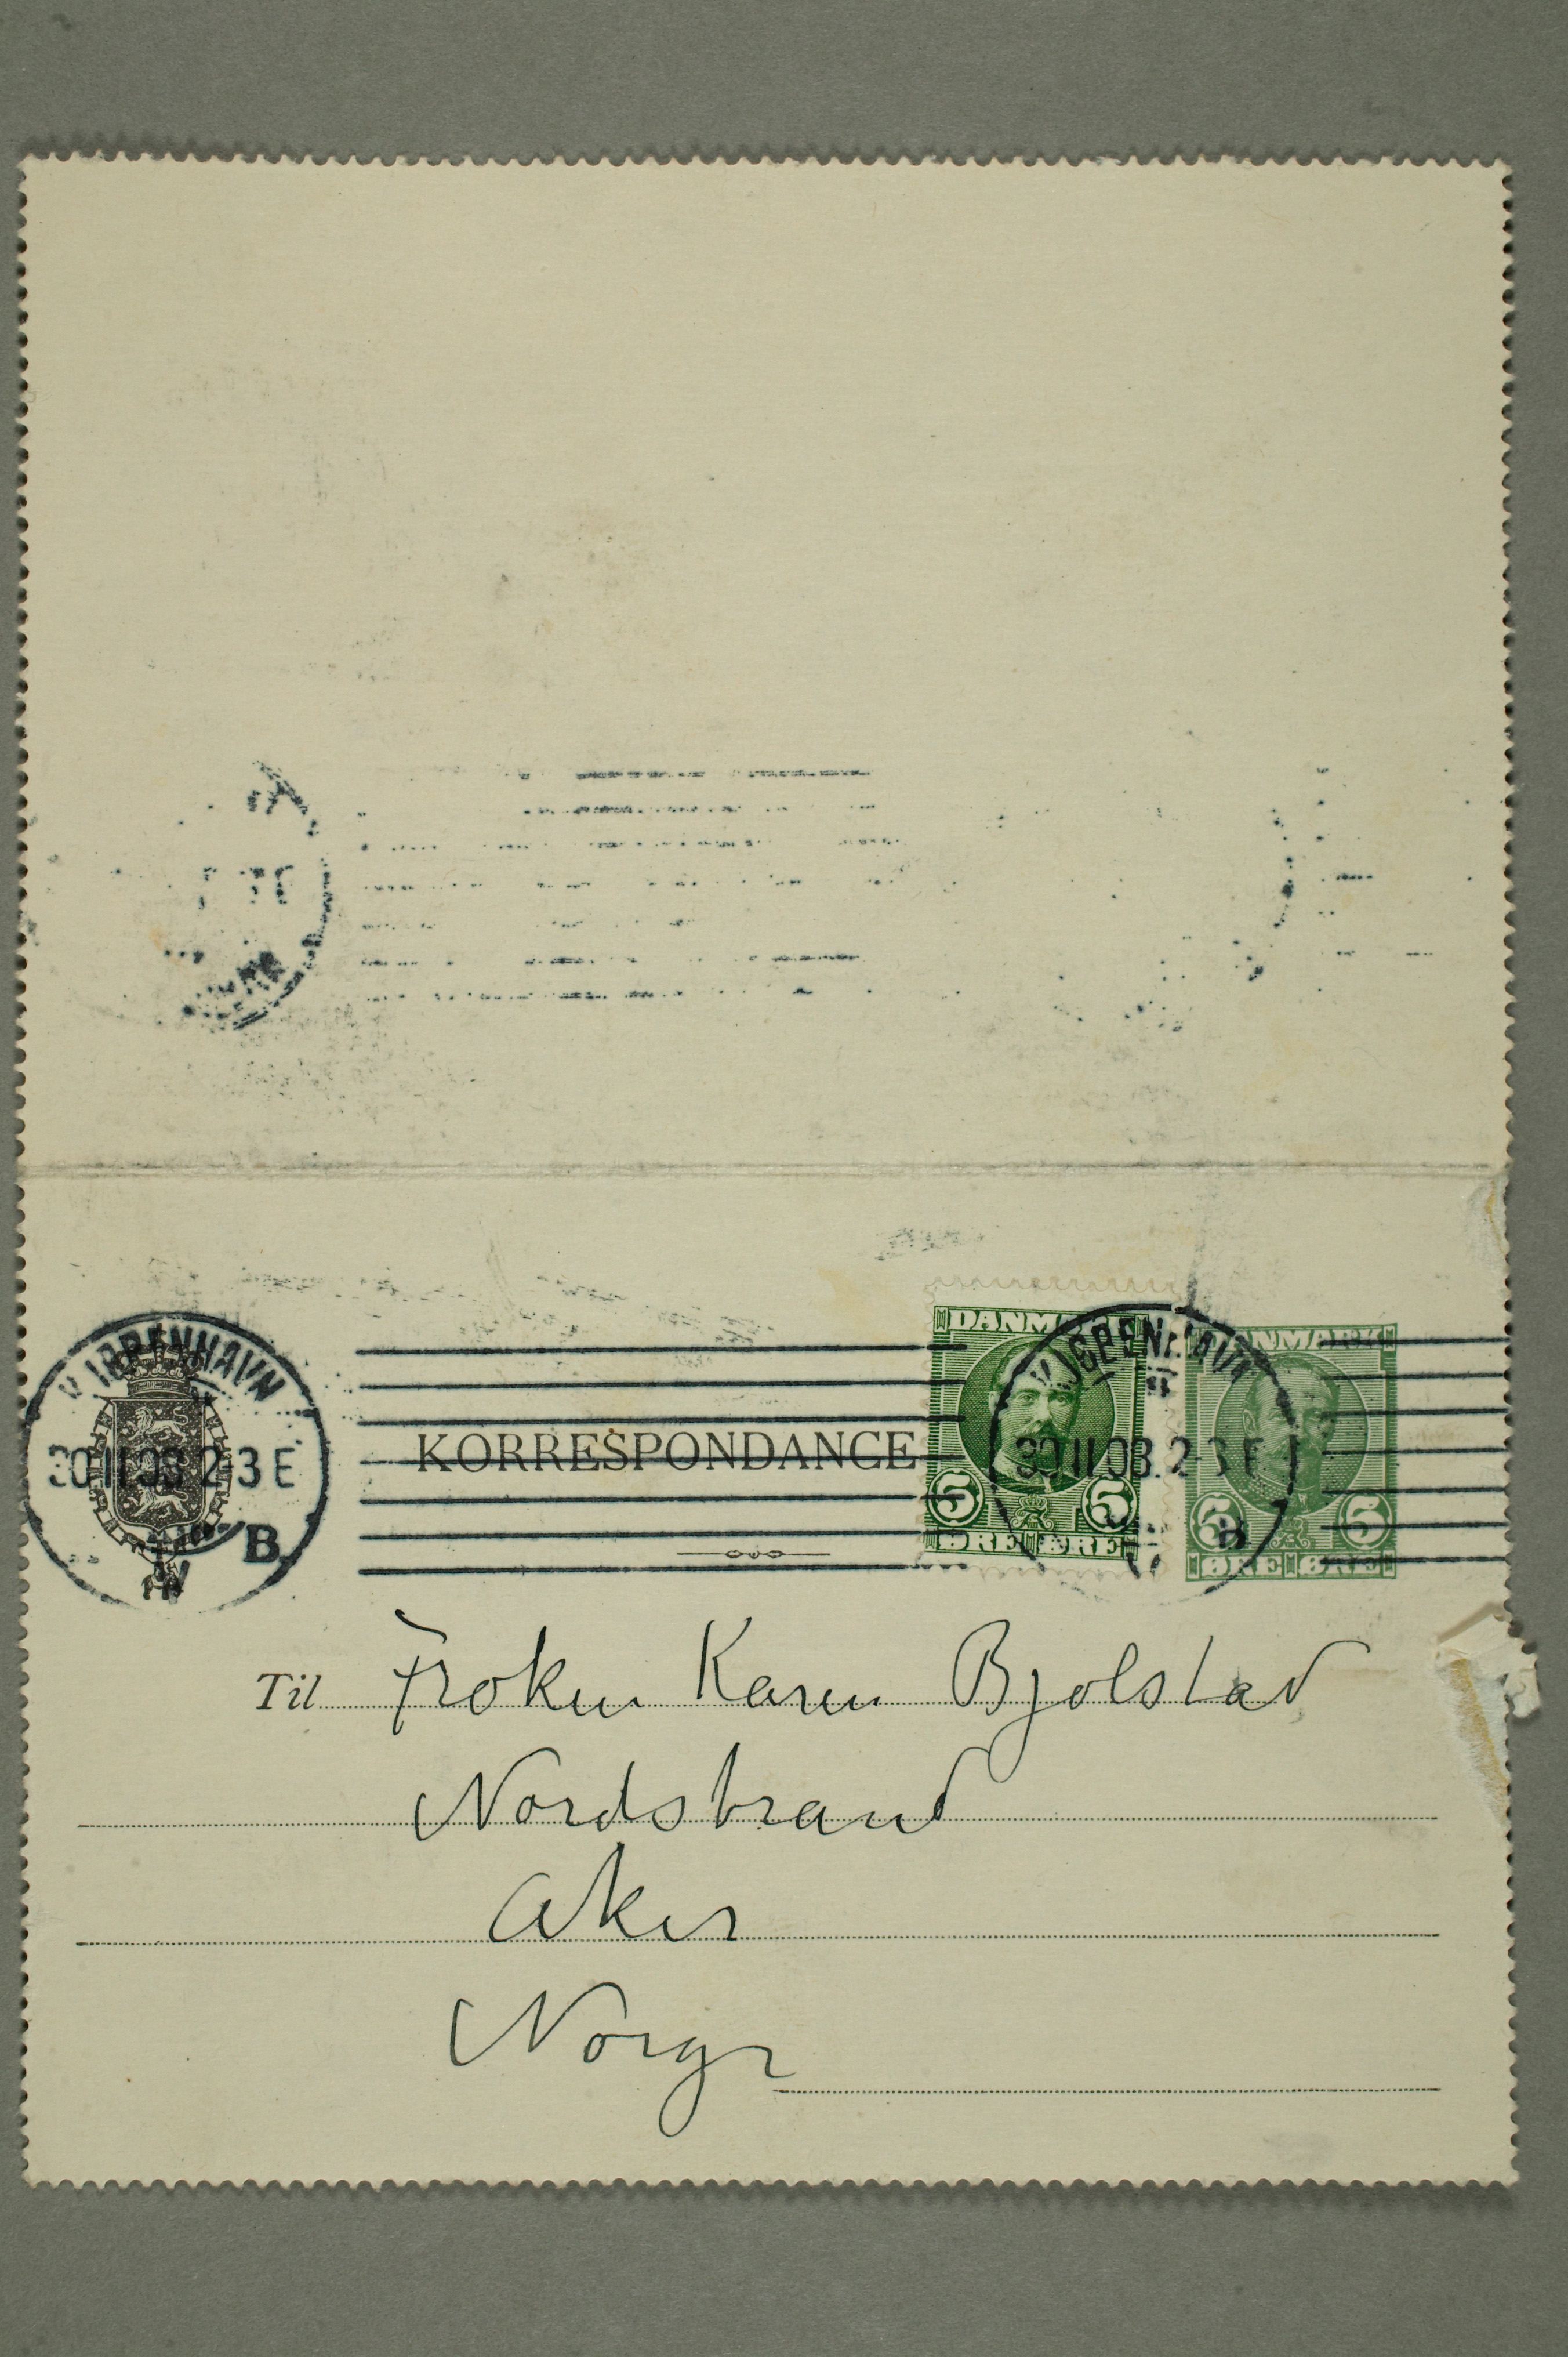 KJØBENHAVN
30.11.08. 2-3 E
B
KORRESPONDANCE
DANMARK
5 5
ØRE ØRE
KJØBENHAVN
30.11.08. 2-3 E
DANMARK
5 5
ØRE ØRE
Til Frøken Karen Bjølstad
Nordstrand
Aker
Norge